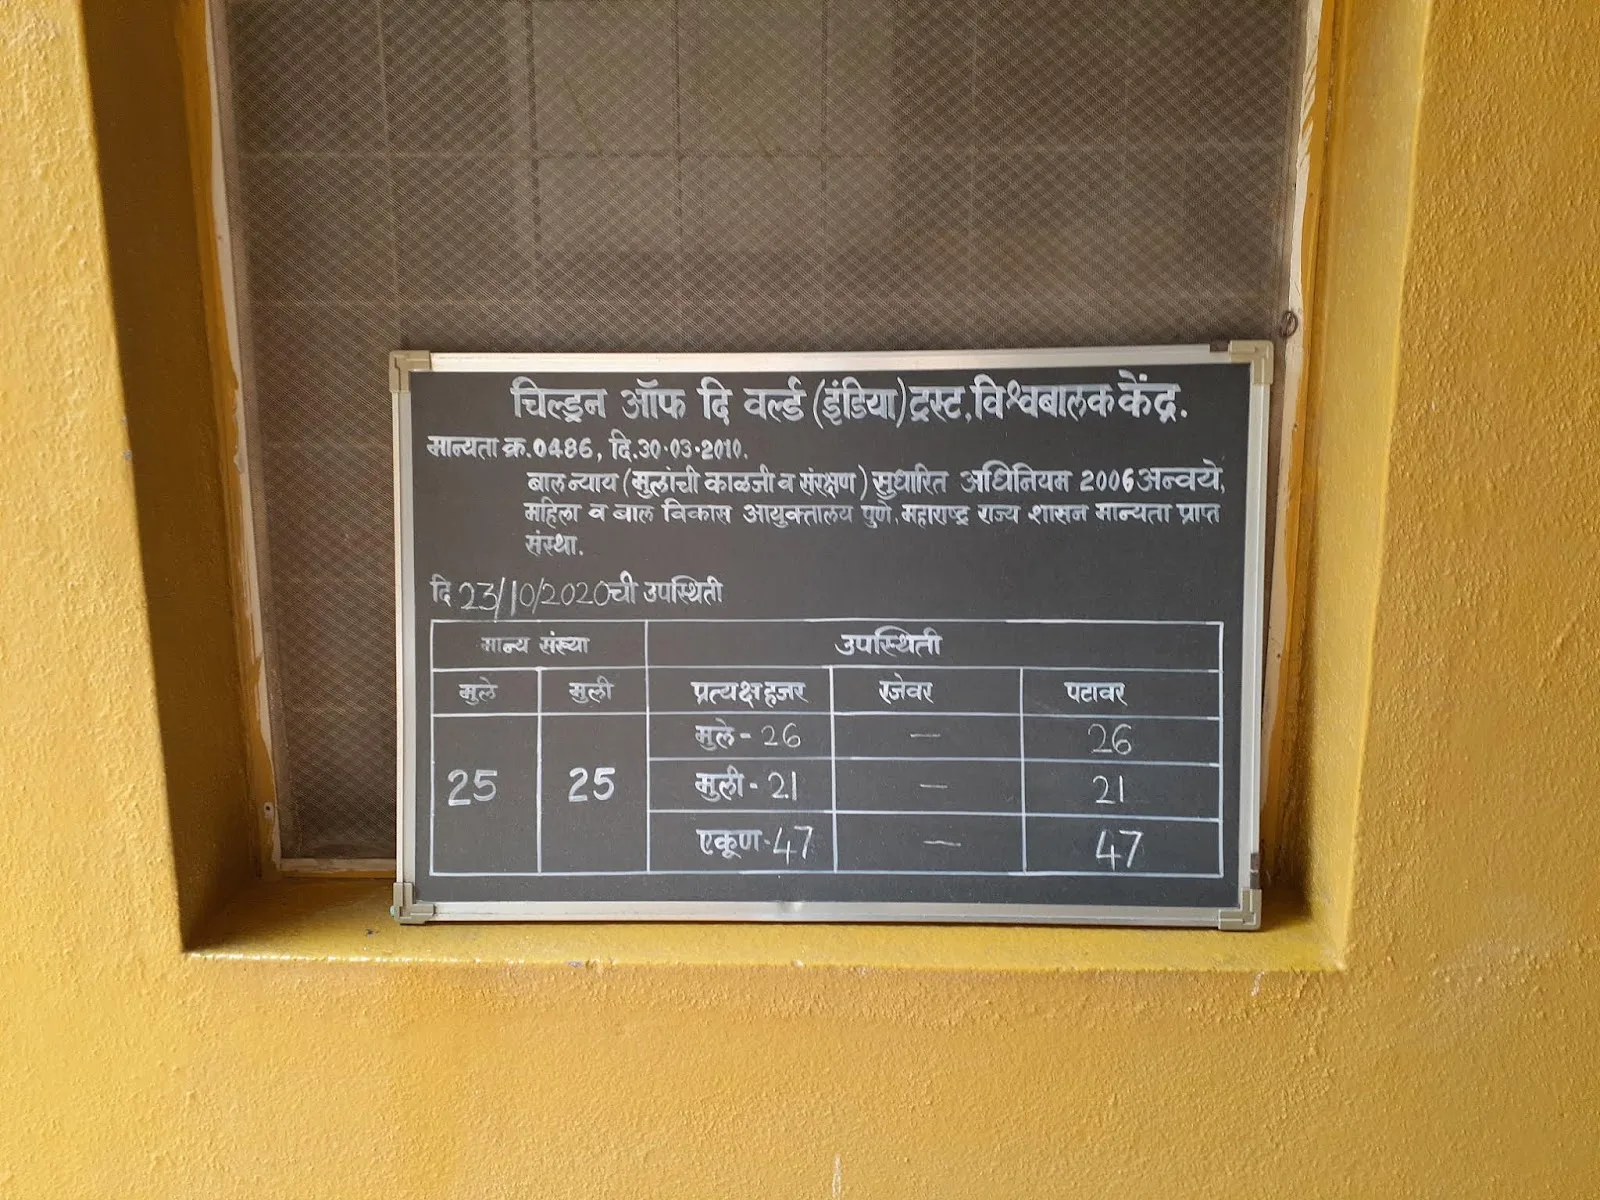 चिल्ड्रन ऑफ दि वर्ल्ड (इंडिया) ट्रस्ट, विश्वबालक केंद्र.
मान्यता क्र.0486, दि.30.03.2010.
बाल न्याय (मुलांची काळजी व संरक्षण) सुधारित अधिनियम 2006 अन्वये,
महिला व बाल विकास आयुक्तालय पुणे, महाराष्ट्र राज्य शासन मान्यता प्राप्त
संस्था.
दि 23/10/2020 ची उपस्थिती
मान्य संख्या उपस्थिती
मुले मुली प्रत्यक्ष हजर रजेवर पटावर
मुले - 26 — 26
25 25 मुली - 21 — 21
एकूण - 47 — 47